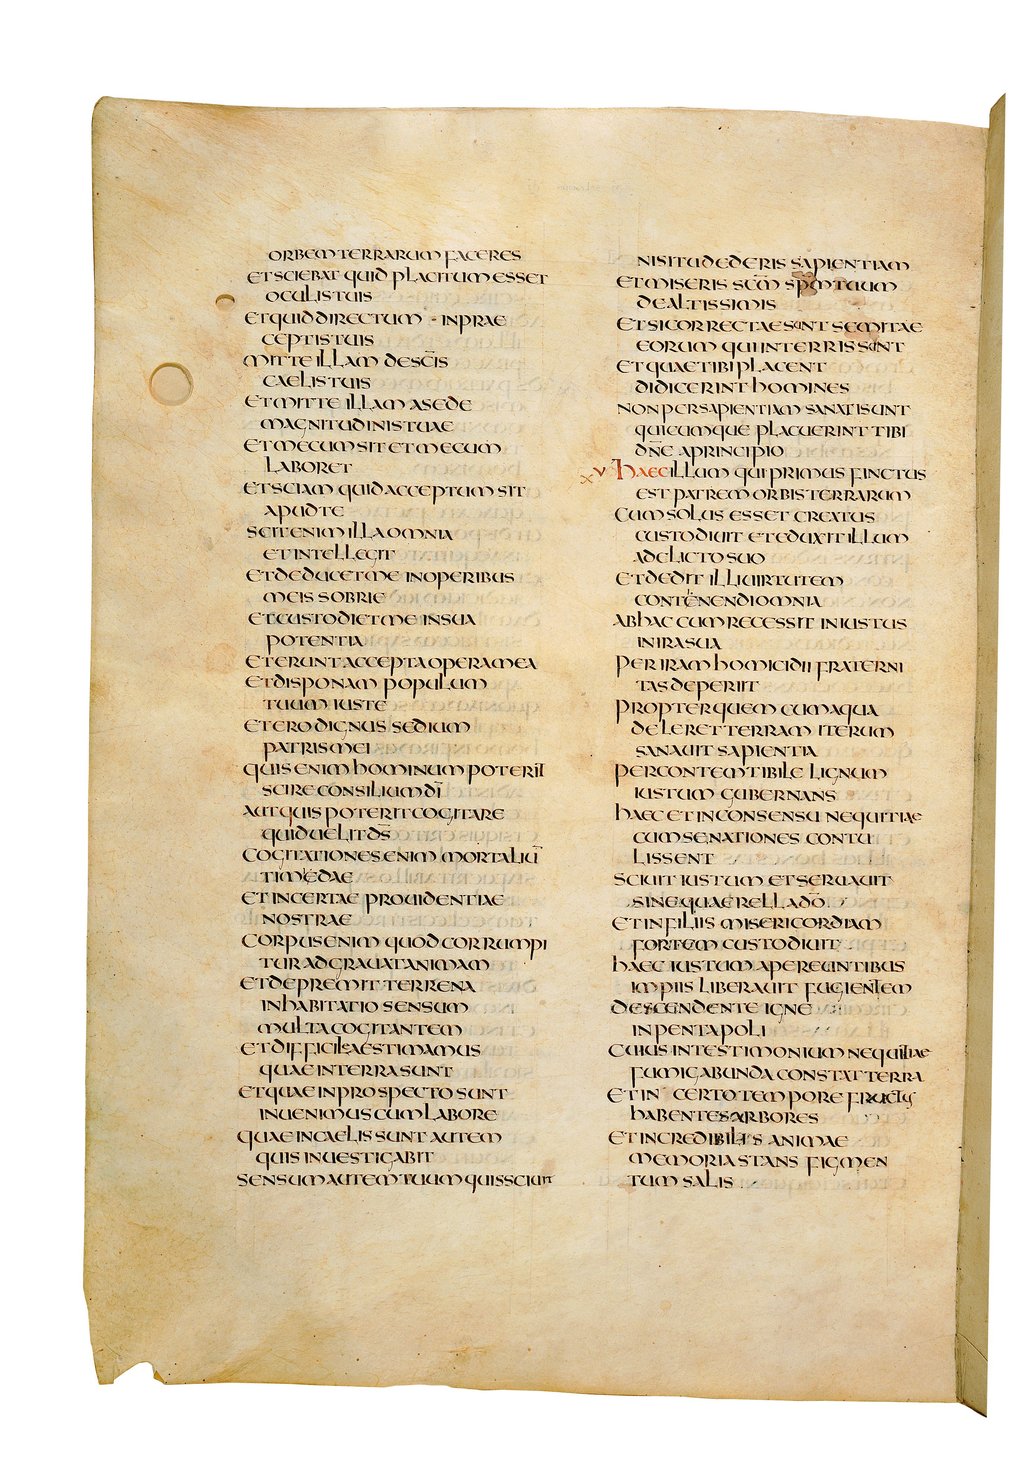 ORBEM TERRARUM FACERES
ET SCIEBAT QUID PLACITUM ESSET
OCULIS TUIS
ET QUID DIRECTUM IN PRAE
CEPTIS TUIS
MITTE ILLAM DE SC̅IS
CAELIS TUIS
ET MITTE ILLAM A SEDE
MAGNITUDINIS TUAE
ET MECUM SIT ET MECUM
LABORET
ET SCIAM QUID ACCEPTUM SIT
APUD TE
SCIT ENIM ILLA OMNIA
ET INTELLEGIT
ET DEDUCET ME IN OPERIBUS
MEIS SOBRIE
ET CUSTODIET ME IN SUA
POTENTIA
ET ERUNT ACCEPTA OPERA MEA
ET DISPONAM POPULUM
TUUM IUSTE
ET ERO DIGNUS SEDIUM
PATRIS MEI
QUIS ENIM HOMINUM POTERIT
SCIRE CONSILIUM D̅I
AUT QUIS POTERIT COGITARE
QUID UELIT D̅S
COGITATIONES ENIM MORTALIU̅
TIMIDAE
ET INCERTAE PROUIDENTIAE
NOSTRAE
CORPUS ENIM QUOD CORRUMPI
TUR ADGRAUAT ANIMAM
ET DEPREMIT TERRENA
INHABITATIO SENSUM
MULTA COGITANTEM
ET DIFFICILE AESTIMAMUS
QUAE IN TERRA SUNT
ET QUAE IN PROSPECTO SUNT
INUENIMUS CUM LABORE
QUAE IN CAELIS SUNT AUTEM
QUIS INUESTIGABIT
SENSUM AUTEM TUUM QUIS SCIUIT
NISI TU DEDERIS SAPIENTIAM
ET MISERIS SC̅M SP̅M TUUM
DE ALTISSIMIS
ET SIC CORRECTAE SUNT SEMITAE
EORUM QUI IN TERRIS SUNT
ET QUAE TIBI PLACENT
DIDICERINT HOMINES
NON PER SAPIENTIAM SANATI SUNT
QUICUMQUE PLACUERINT TIBI
DN̅E A PRINCIPIO
X V HAEC ILLUM QUI PRIMUS FINCTUS
EST PATREM ORBIS TERRARUM
CUM SOLUS ESSET CREATUS
CUSTODIUIT ET EDUXIT ILLUM
A DELICTO SUO
ET DEDIT ILLI UIRTUTEM
CONTENENDI OMNIA
AB HAC CUM RECESSIT INIUSTUS
IN IRA SUA
PER IRAM HOMICIDII FRATERNI
TAS DEPERIIT
PROPTER QUEM CUM AQUA
DELERET TERRAM ITERUM
SANAUIT SAPIENTIA
PER CONTEMTIBILE LIGNUM
IUSTUM GUBERNANS
HAEC ET IN CONSENSU NEQUITIAE
CUM SE NATIONES CONTU
LISSENT
SCIUIT IUSTUM ET SERUAUIT
SINE QUAERELLA D̅O
ET IN FILIIS MISERICORDIAM
FORTEM CUSTODIUIT
HAEC IUSTUM A PEREUNTIBUS
IMPIIS LIBERAUIT FUGIENTEM
DESCENDENTE IGNE
IN PENTAPOLI
CUIUS IN TESTIMONIUM NEQUITIAE
FUMIGABUNDA CONSTAT TERRA
ET IN CERTO TEMPORE FRUCTUS
HABENTES ARBORES
ET INCREDIBILIS ANIMAE
MEMORIA STANS FIGMEN
TUM SALIS